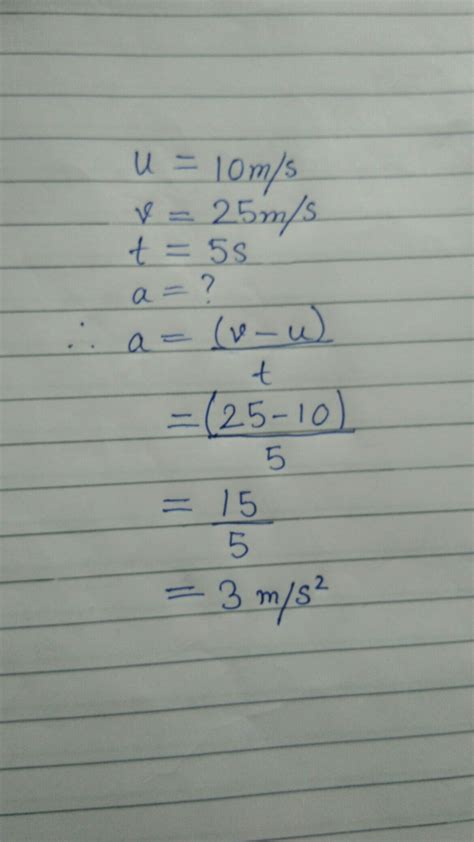 u = 10m/s
v = 25m/s
t = 5s
a = ?
∴ a = (v - u) / t
= (25 - 10) / 5
= 15 / 5
= 3 m/s²